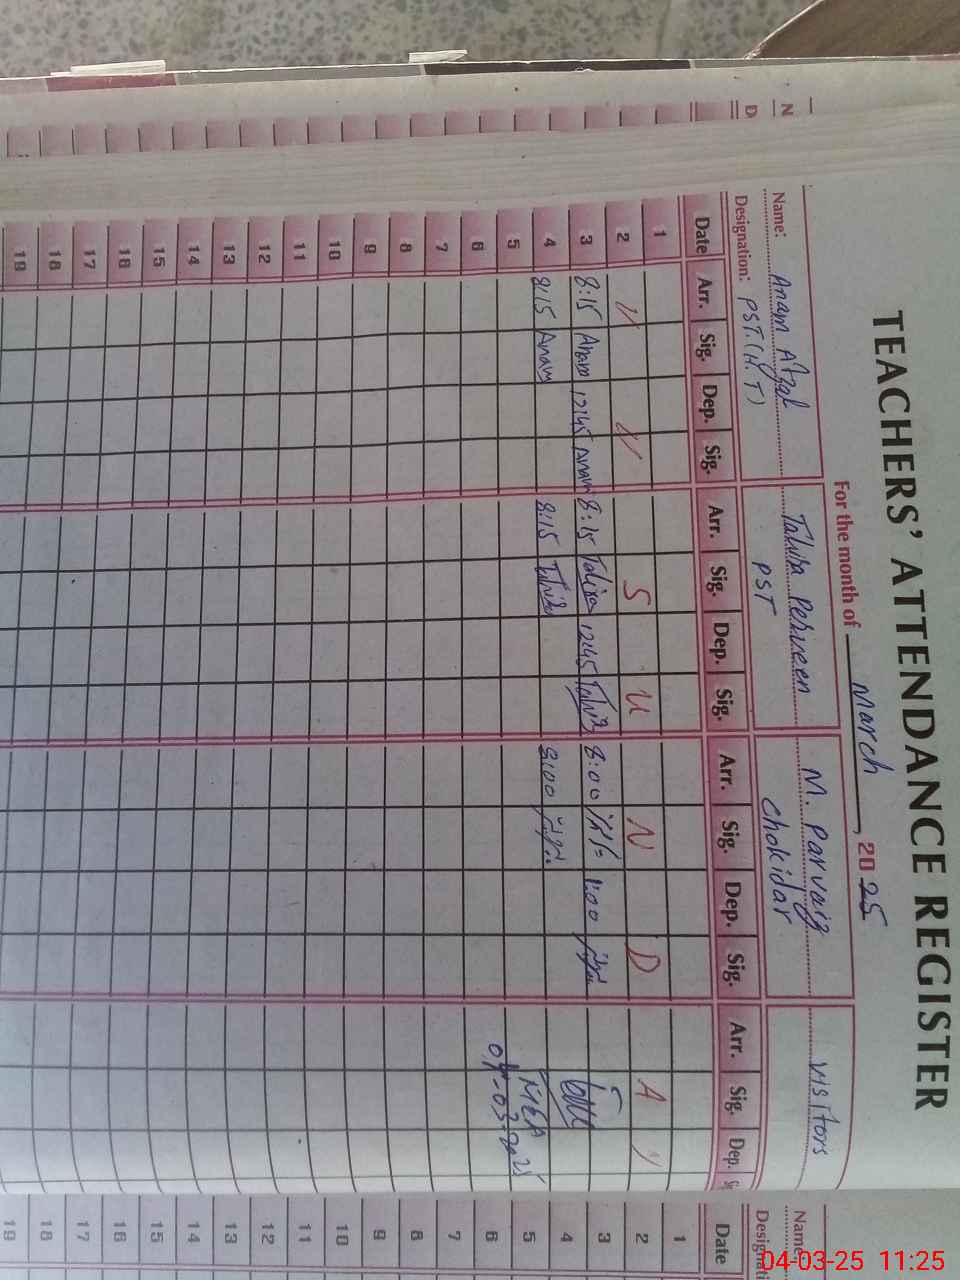 TEACHERS' ATTENDANCE REGISTER
For the month of March, 2025
Name: Anam Afzal Tahiba Perveen M. Parvaiz Visitors
Designation: PST (H.T) PST Chokidar
Date Arr. Sig. Dep. Sig. Arr. Sig. Dep. Sig. Arr. Sig. Dep. Sig. Arr. Sig. Dep.
1
2 " " S U N D A Y
3 8:15 Anam 12:45 Anam 8:15 12:45 8:00 1:00
4 8:15 Anam 8:15 8:00
5 MEA
6 04-03-2025
7
8
9
10
11
12
13
14
15
16
17
18
19
Name:
Date
1
2
3
4
5
6
7
8
9
10
11
12
13
14
15
16
17
18
19
04-03-25 11:25